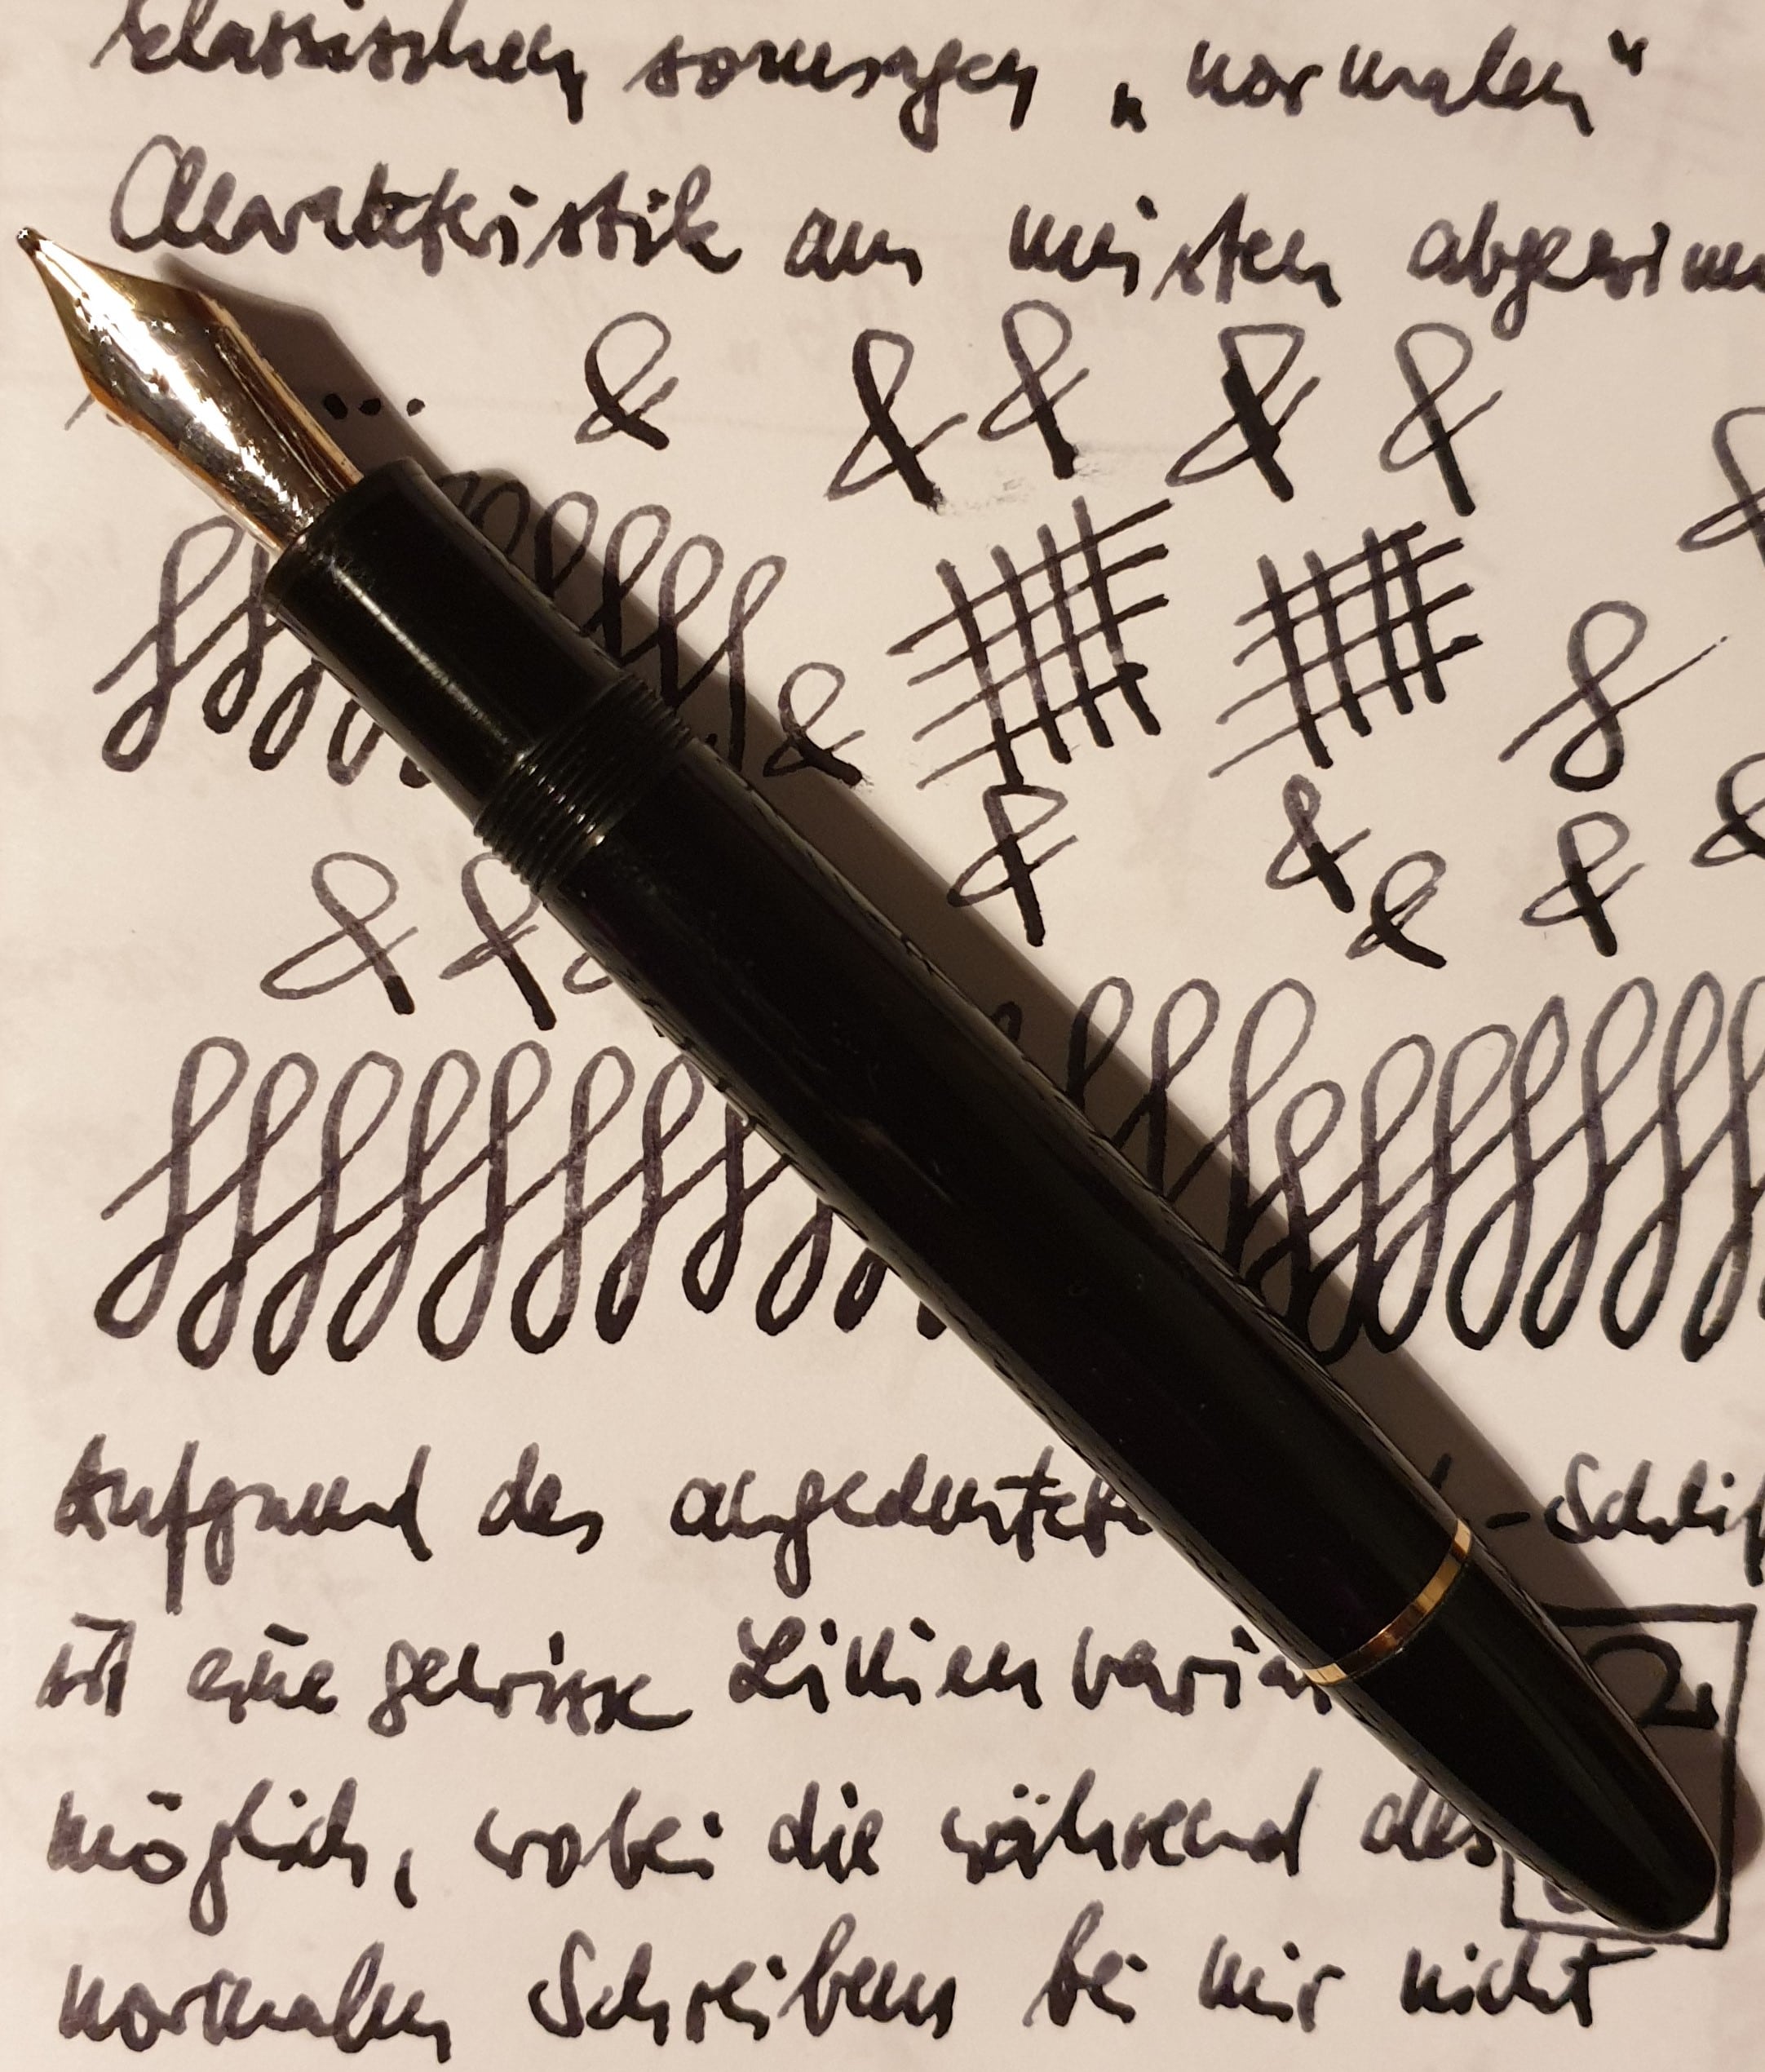 klassischen sozusagen „normalen“
Charakteristik am meisten abgewinn
... & & & & &
& &
& & & &
& &
Aufgrund des angedeuteten -Schlif
ist eine gewisse Linienvarian
möglich, wobei die während des
normalen Schreibens bei mir nicht
2